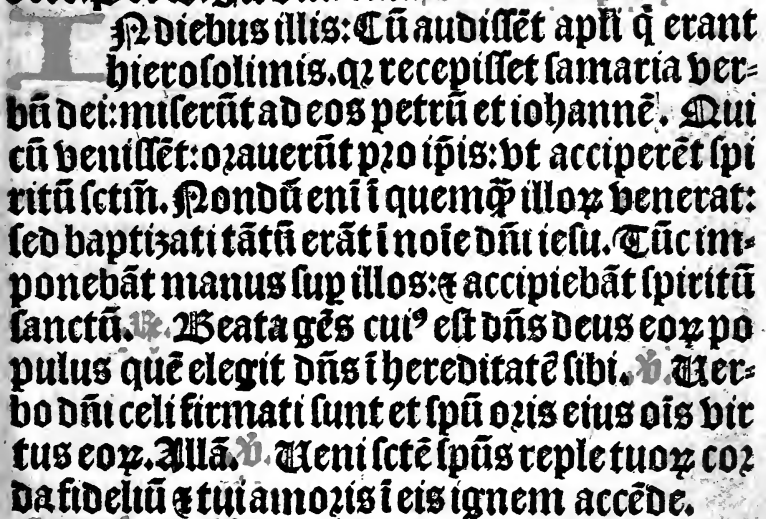 IN diebus illis: Cū audissēt apli q̄ erant
hierosolimis. qꝛ recepisset samaria ver⸗
bū dei: miserūt ad eos petrū et iohannē. Qui
cū venissēt: orauerūt pro ip̄is: vt acciperēt spi
ritū sctm̄. Nondū eni ī quemq̄ȝ illoꝝ venerat:
sed baptizati tātū erāt ī noie dn̄i iesu. Tūc im⸗
ponebāt manus suꝑ illos: ⁊ accipiebāt spiritū
sanctū. ℟. Beata gēs cuiꝰ est dn̄s deus eoꝝ po
pulus quē elegit dn̄s ī hereditatē sibi. ℣. Uer⸗
bo dn̄i celi firmati sunt et spū oris eius ois vir
tus eoꝝ. Allā. ℣. Ueni sctē spūs reple tuoꝝ cor
da fideliū ⁊ tui amoris ī eis ignem accēde.